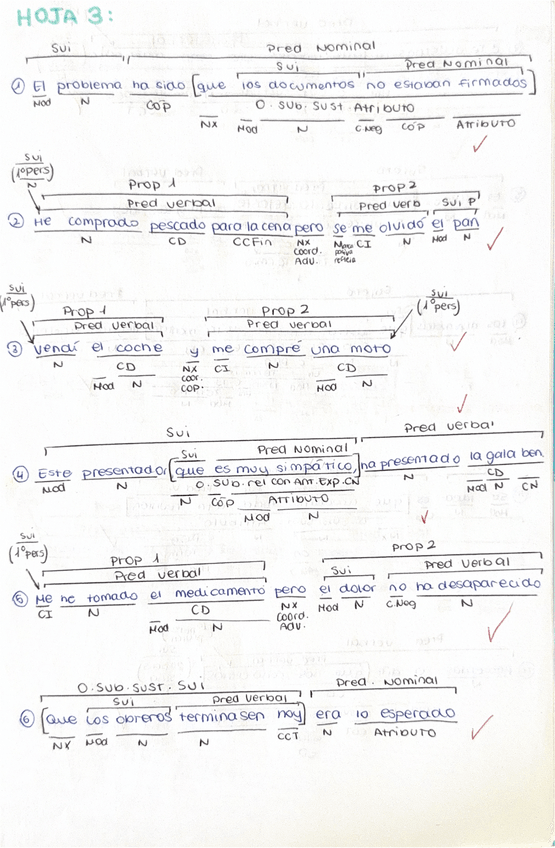 HOJA 3:
Suj Pred Nominal
Suj Pred Nominal
① El problema ha sido [que los documentos no estaban firmados]
Mod N COP O. SUB. SUST. Atributo
NX Mod N C.Neg COP ATRIBUTO
Suj
(1ºpers)
N
Prop 1 Prop 2
Pred verbal Pred verb Suj P
② He comprado pescado para la cena pero se me olvidó el pan
N CD CCFin NX CI N Mod N
Coord.
Adv.
Suj
(1ºpers)
Suj
(1ºpers)
Prop 1 Prop 2
Pred verbal Pred verbal
③ Vendí el coche y me compré una moto
N CD NX CI N CD
Mod N coor. Mod N
COP.
Suj Pred verbal
Suj Pred Nominal
④ Este presentador [que es muy simpático,] ha presentado la gala bien
Mod N O. SUB. rel con Ant. Exp. CN N CD
N COP ATRIBUTO Mod N CN
Mod N
Suj
(1ºpers)
Prop 1 Prop 2
Pred verbal Suj Pred Verbal
⑤ Me he tomado el medicamento pero el dolor no ha desaparecido
CI N CD NX Mod N C.Neg N
Mod N Coord.
Adv.
O. SUB. SUST. Suj Pred. Nominal
Suj Pred Verbal
⑥ [Que los obreros terminasen hoy] era lo esperado
NX Mod N N CCT N Atributo